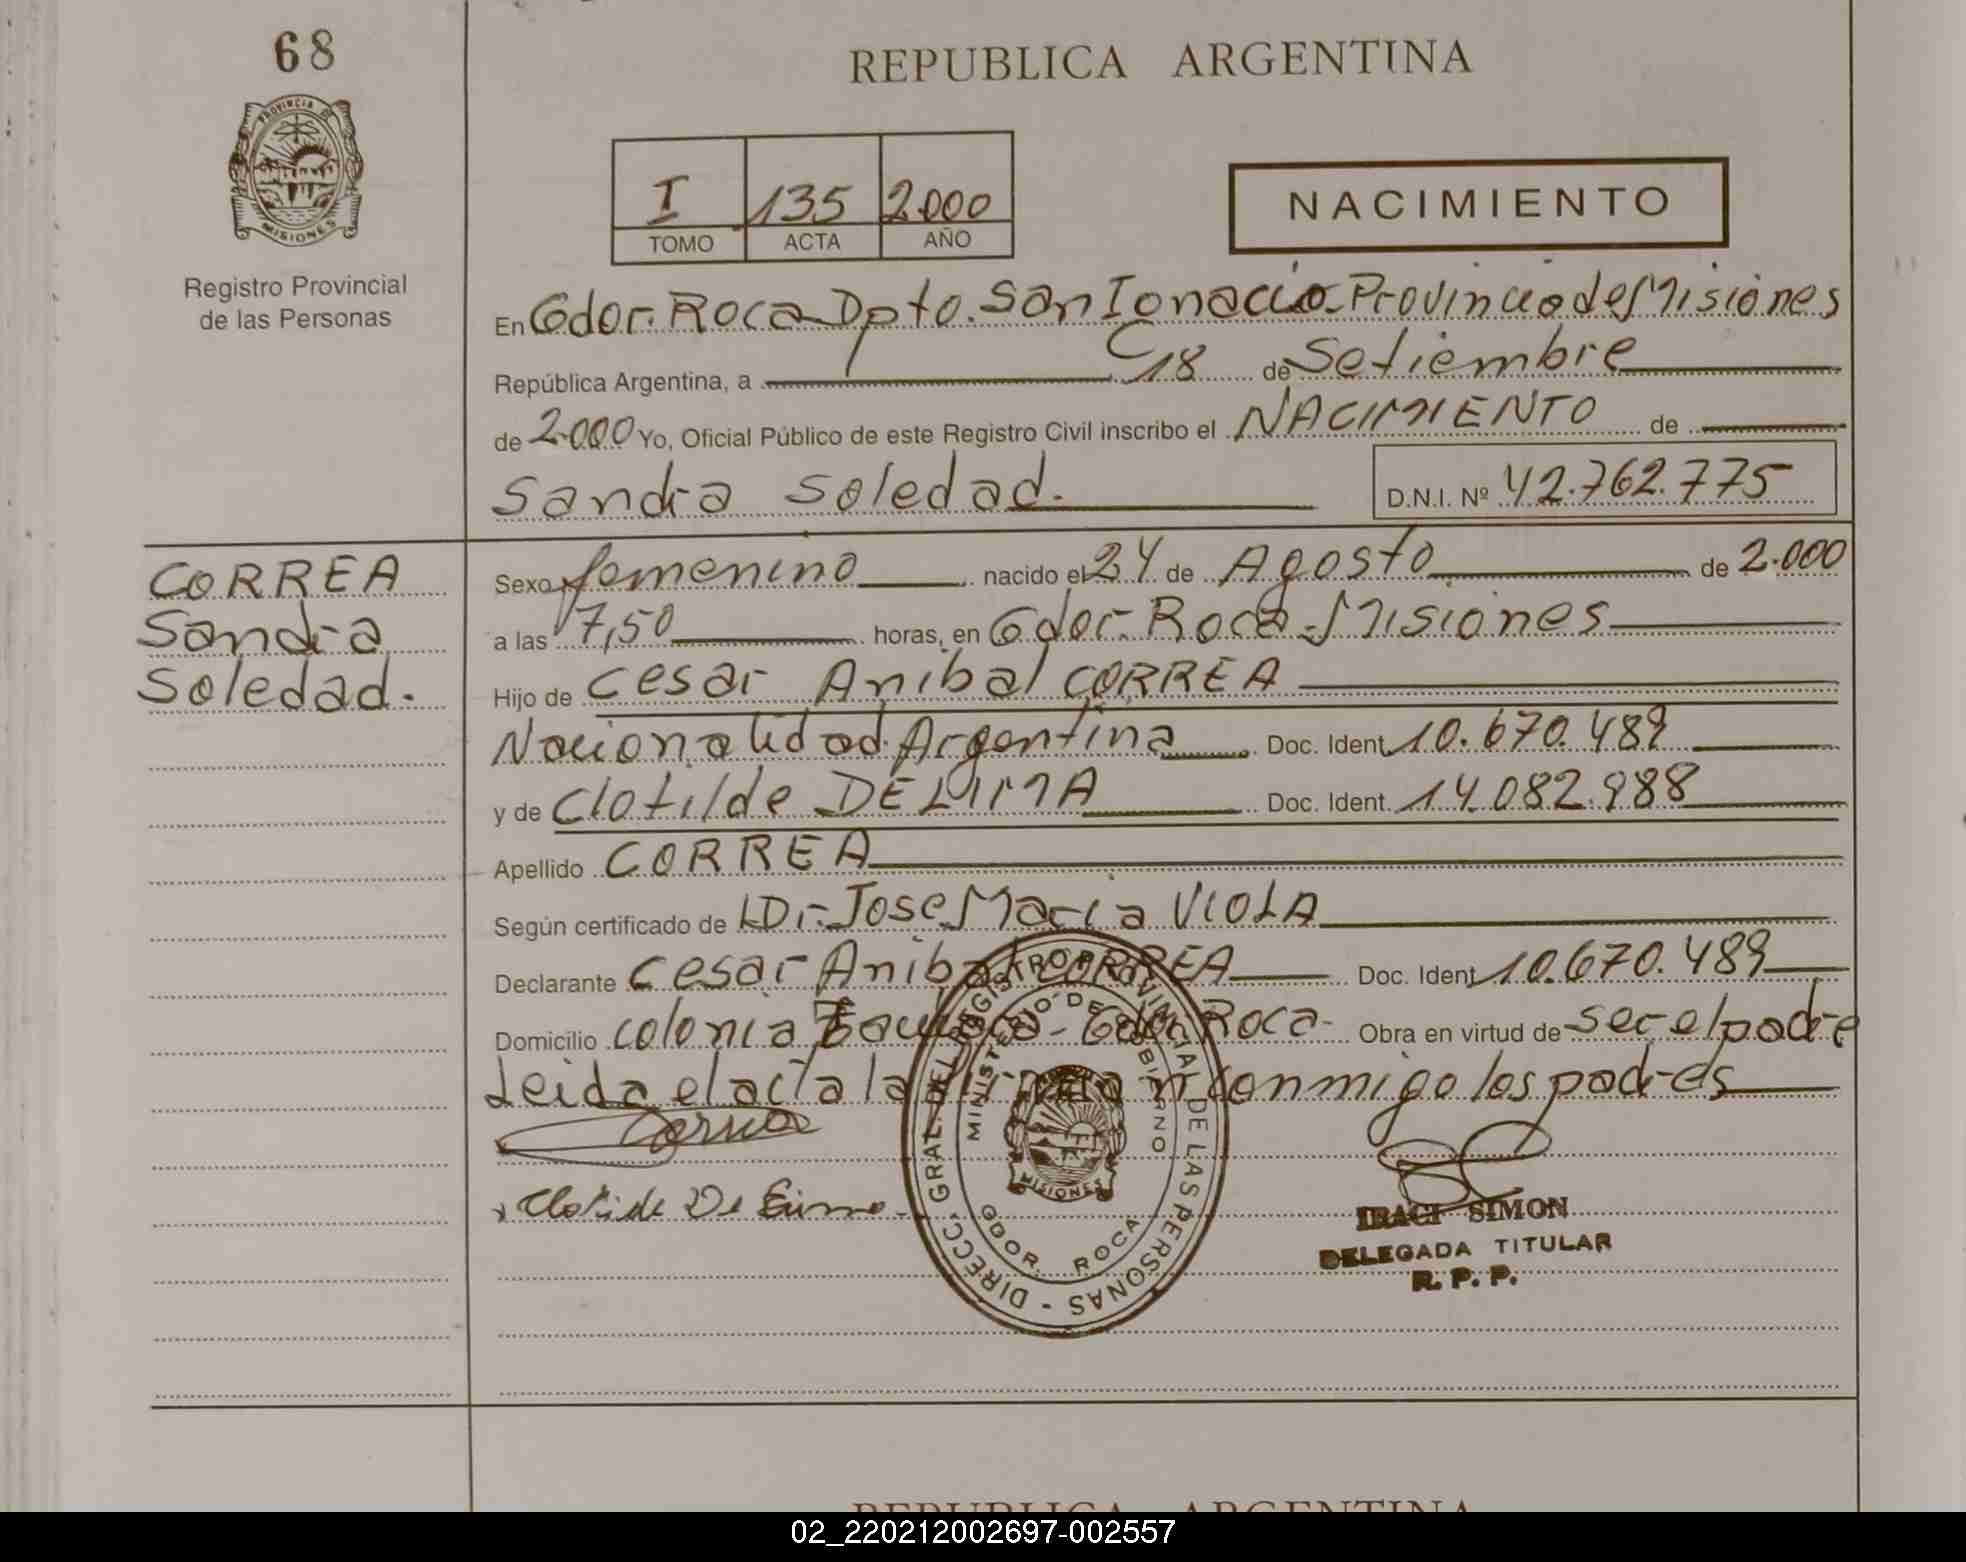 68
REPUBLICA ARGENTINA
PROVINCIA DE
MISIONES
Registro Provincial
de las Personas
I 135 2.000
TOMO ACTA AÑO
NACIMIENTO
En Gdor. Roca Dpto. San Ignacio Provincia de Misiones
República Argentina, a 18 de Setiembre
de 2.000 Yo, Oficial Público de este Registro Civil inscribo el NACIMIENTO de
Sandra Soledad.
D.N.I. Nº 42.762.775
CORREA
Sandra
Soledad.
Sexo femenino nacido el 24 de Agosto de 2.000
a las 7,50 horas, en Gdor. Roca - Misiones
Hijo de Cesar Anibal CORREA
Nacionalidad Argentina Doc. Ident. 10.670.489
y de Clotilde DE LIMA Doc. Ident. 14.082.988
Apellido CORREA
Según certificado de Dr. Jose Maria VIOLA
Declarante Cesar Anibal CORREA Doc. Ident. 10.670.489
Domicilio colonia Gdor. Roca - Obra en virtud de ser el padre
Leida el acta la firman conmigo los padres
Clotilde De Lima
DIRECC. GRAL. DEL REGISTRO PROVINCIAL DE LAS PERSONAS -
MINISTERIO DE GOBIERNO
MISIONES
GDOR. ROCA
IRACI SIMON
DELEGADA TITULAR
R. P. P.
REPUBLICA ARGENTINA
02_220212002697-002557